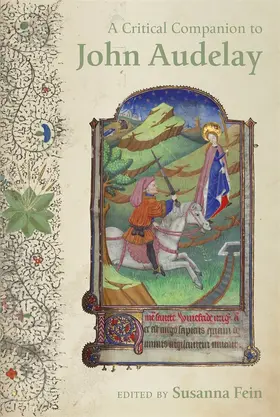 A Critical Companion to
John Audelay
EDITED BY Susanna Fein